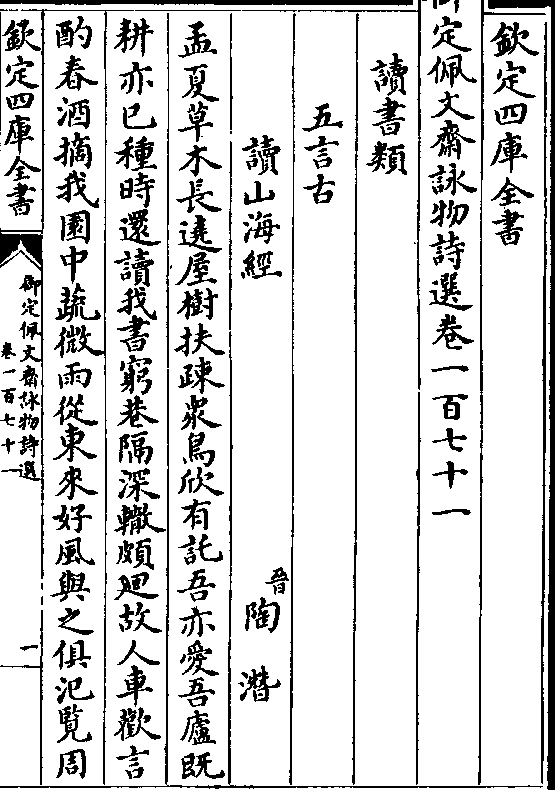 欽定四庫全書
御定佩文齋詠物詩選卷一百七十一
讀書類
五言古
讀山海經　晉陶潛
孟夏草木長遶屋樹扶疎衆鳥欣有託吾亦愛吾廬既
耕亦已種時還讀我書窮巷隔深轍頗廻故人車歡言
酌春酒摘我園中蔬微雨從東來好風與之俱汜覽周
欽定四庫全書
御定佩文齋詠物詩選
卷一百七十一
一